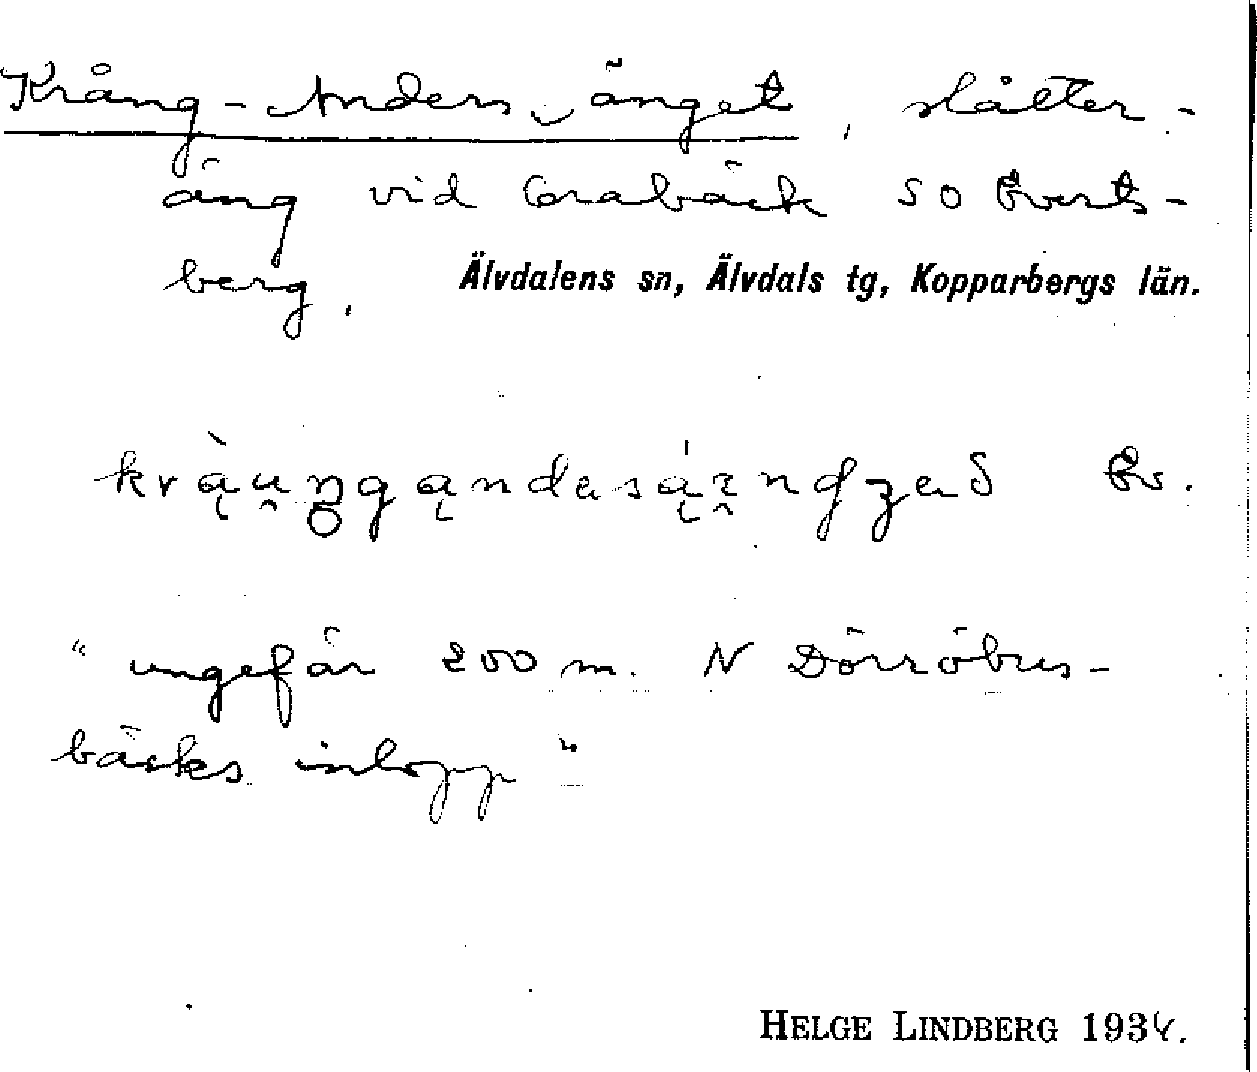 Krång-Anders änget, slåtter-
äng vid Grabäck SO Everts-
berg.
Älvdalens sn, Älvdals tg, Kopparbergs län.
Ev.
"ungefär 200 m. N Dörröbus-
bäcks inlopp"
HELGE LINDBERG 1934.